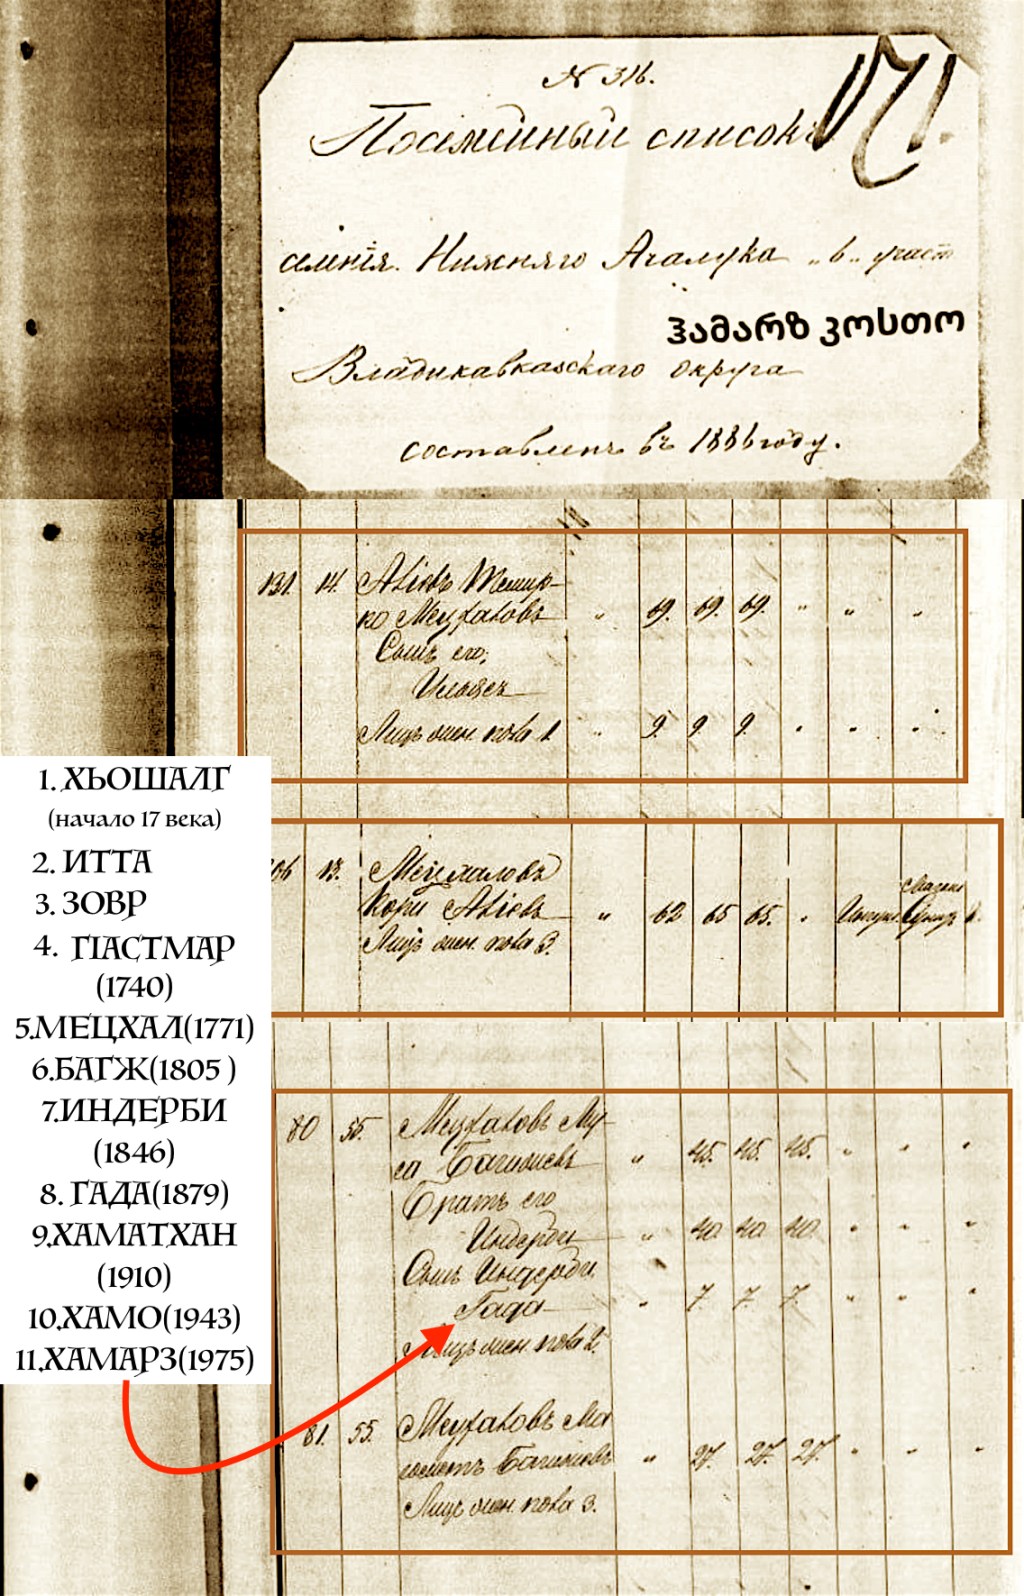 N 316.
171.
Посемейный списокъ
селенія Нижняго Ачалука „ в „ участ
ჰამარზ კოსთო
Владикавказскаго округа
составленъ въ 1886 году.
131. 14. Авіевъ Темир-
ко Мецхаловъ „ 69. 69. 69. „ „ „
Сынъ его;
Лицъ жен. пола 1. „ 9. 9. 9. „ „ „
13. Мецхаловъ
Кори Авіевъ „ 62 65 65. „
Лицъ жен. пола 3.
80 56. Мецхаловъ Му-
са Багжіевъ „ 45. 45. 45. „ „ „
Братъ его
Индерби „ 40 40 40. „ „ „
Сынъ Индерби
Гада „ 7. 7. 7. „ „ „
Лицъ жен. пола 2.
81. 55. Мецхаловъ Ма
гометъ Багжіевъ „ 27. 27. 27. „ „ „
Лицъ жен. пола 3.
1. ХЬОШАЛГ
(начало 17 века)
2. ИТТА
3. ЗОВР
4. ГӀАСТМАР
(1740)
5.МЕЦХАЛ(1771)
6.БАГЖ(1805 )
7.ИНДЕРБИ
(1846)
8. ГАДА(1879)
9.ХАМАТХАН
(1910)
10.ХАМО(1943)
11.ХАМАРЗ(1975)